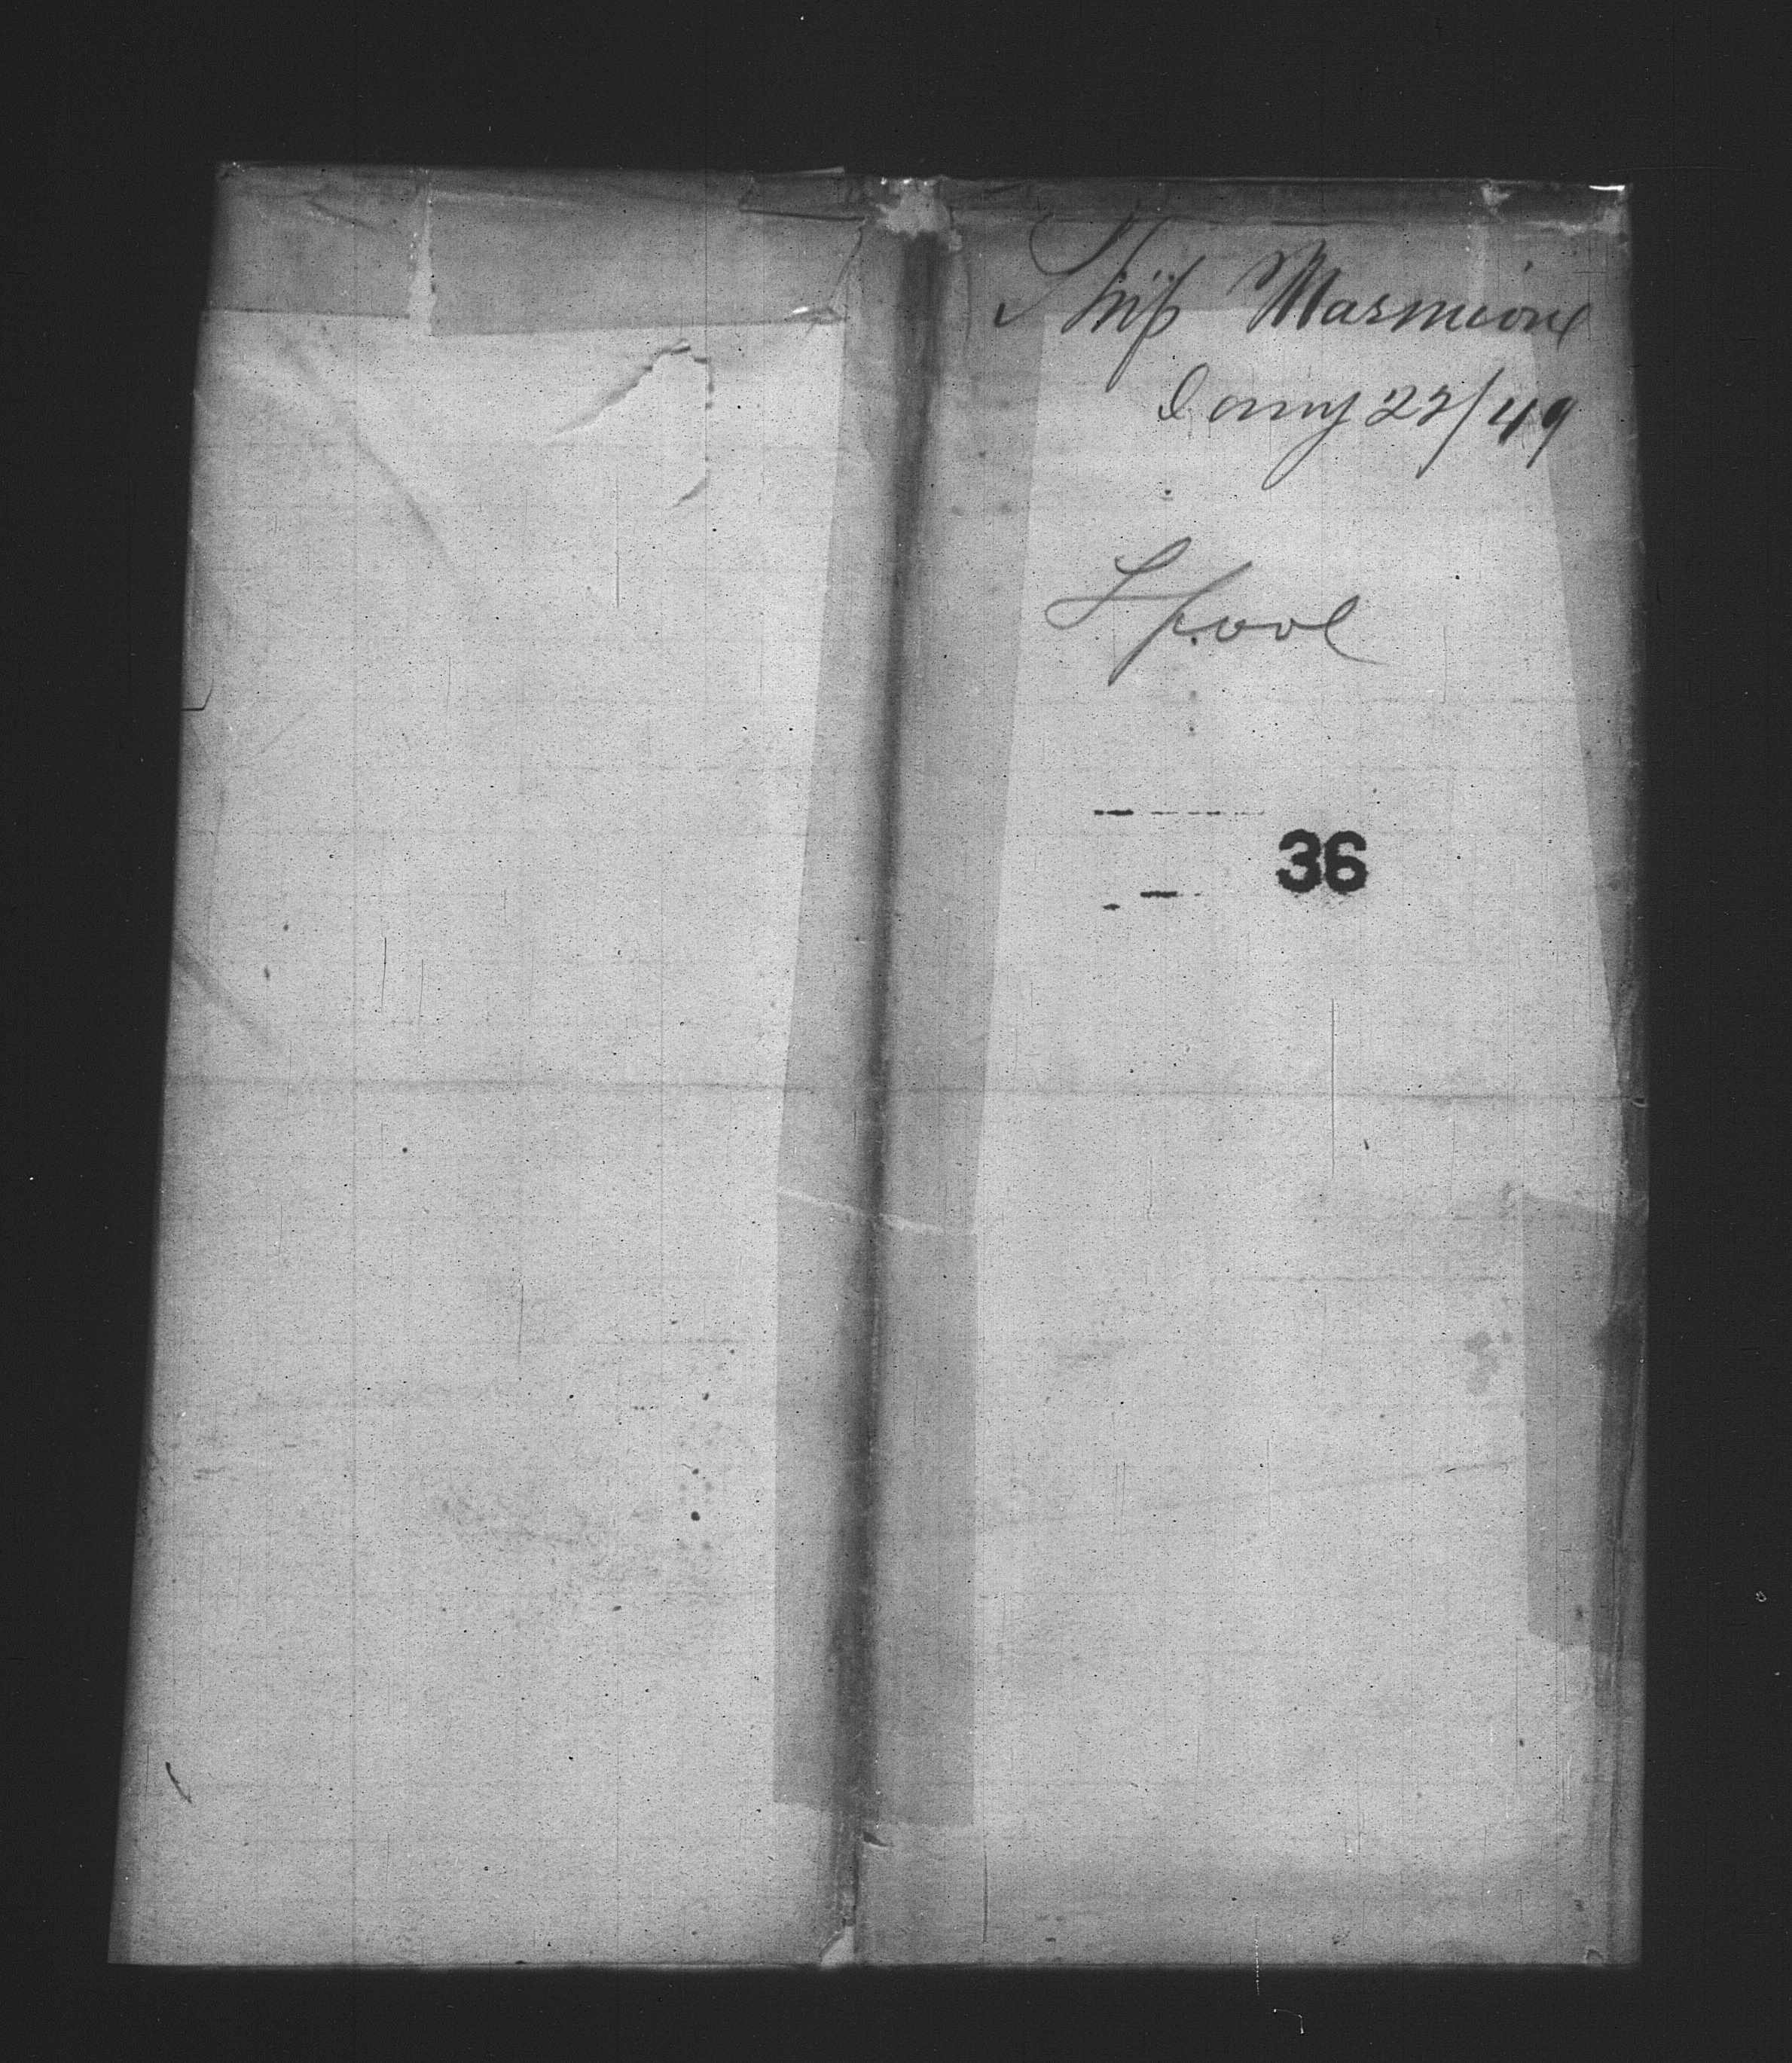 Ship Marmion
Jany 22/49
Lpool
36